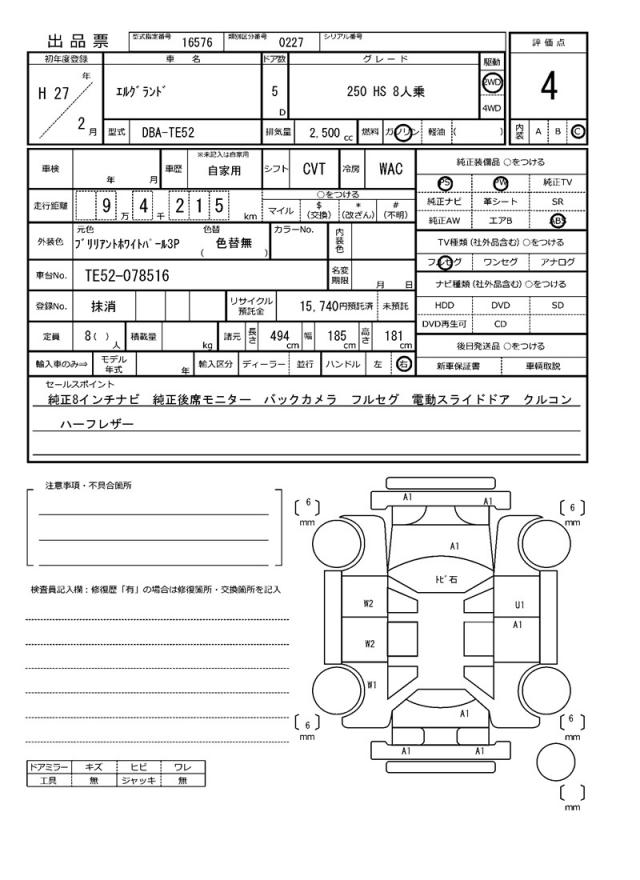 出品票 型式指定番号 16576 類別区分番号 0227 シリアル番号
初年度登録 車名 ドア数 グレード 駆動 評価点
H 27 年 2 月 エルグランド 5 D 250 HS 8人乗 2WD 4WD 4
型式 DBA-TE52 排気量 2,500 cc 燃料 ガソリン 軽油 ( ) 内装 A B C
車検 年 月 車歴 ※未記入は自家用 自家用 シフト CVT 冷房 WAC
走行距離 9 万 4 千 2 1 5 km ○をつける マイル $ (交換) * (改ざん) # (不明)
外装色 元色 ブリリアントホワイトパール3P 色替 ( 色替無 ) カラーNo. 内装色
車台No. TE52-078516 名変期限 月 日
登録No. 抹消 リサイクル預託金 15,740円預託済 未預託
定員 8( ) 人 積載量 kg 諸元 長さ 494 cm 幅 185 cm 高さ 181 cm
輸入車のみ⇒ モデル年式 年 輸入区分 ディーラー 並行 ハンドル 左 右
純正装備品 ○をつける
PS PW 純正TV
純正ナビ 革シート SR
純正AW エアB ABS
TV種類(社外品含む) ○をつける
フルセグ ワンセグ アナログ
ナビ種類(社外品含む) ○をつける
HDD DVD SD
DVD再生可 CD
後日発送品 ○をつける
新車保証書 車輌取説
セールスポイント
純正8インチナビ 純正後席モニター バックカメラ フルセグ 電動スライドドア クルコン
ハーフレザー
注意事項・不具合箇所
検査員記入欄：修復歴「有」の場合は修復箇所・交換箇所を記入
ドアミラー キズ ヒビ ワレ
工具 無 ジャッキ 無
A1 A1
6 mm 6 mm
A1
トビ石
W2 U1
A1
W2
W1
A1
6 mm 6 mm
A1 A1
mm